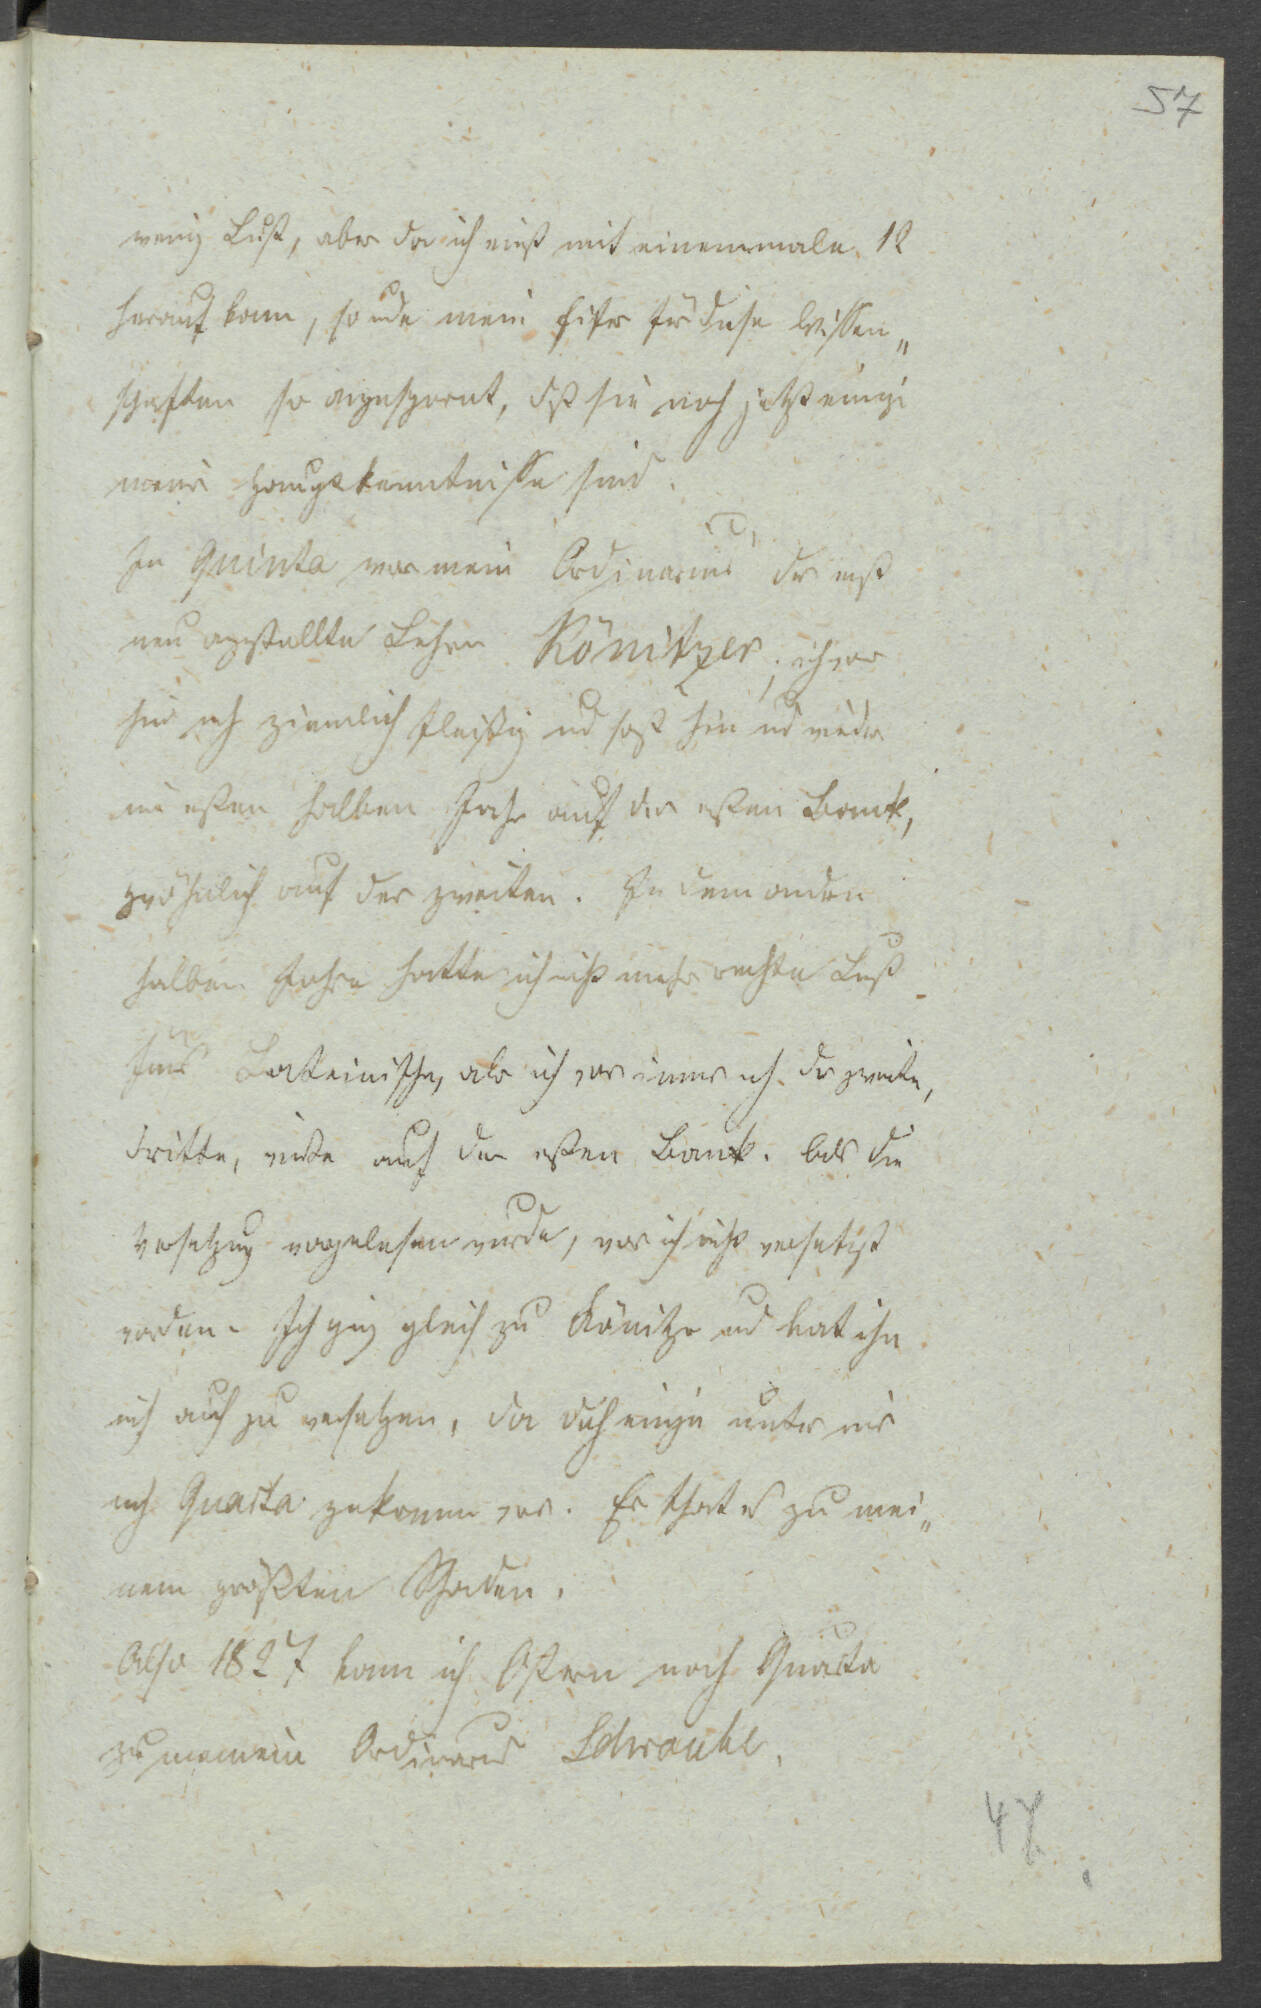 57
wenig Lust, aber da ich einst mit einemmale 12
herauf kam, so wde mein Eifer für diese Wissen„
schaften so angespornt, dß sie noch jetzt einige
meiner Hauptkenntnisse sind.
In Quinta war mein Ordinarius der erst
neu angestellte Lehrer Könitzer; ich war
hier nch ziemlich fleißig und saß hin und wieder
im ersten halben Jahr auf der ersten Bank,
gewöhnlich auf der zweiten. In dem andern
halben Jahre hatte ich nicht mehr rechte Lust
fürs Lateinische, aber ich war immer nch der zweite,
dritte, vierte auf der ersten Bank. Als die
Versetzung vorgelesen wurde, war ich nicht versetzt
worden. Ich ging gleich zu Könitzer und bat ihn
mich auch zu versetzen, da doch einige unter mir
nch Quarta gekommen war. Er that es zu mei„
nem größten Schaden.
Also 1827 kam ich Ostern nach Quarta
zu meinem Ordinarius Schwaube.
47